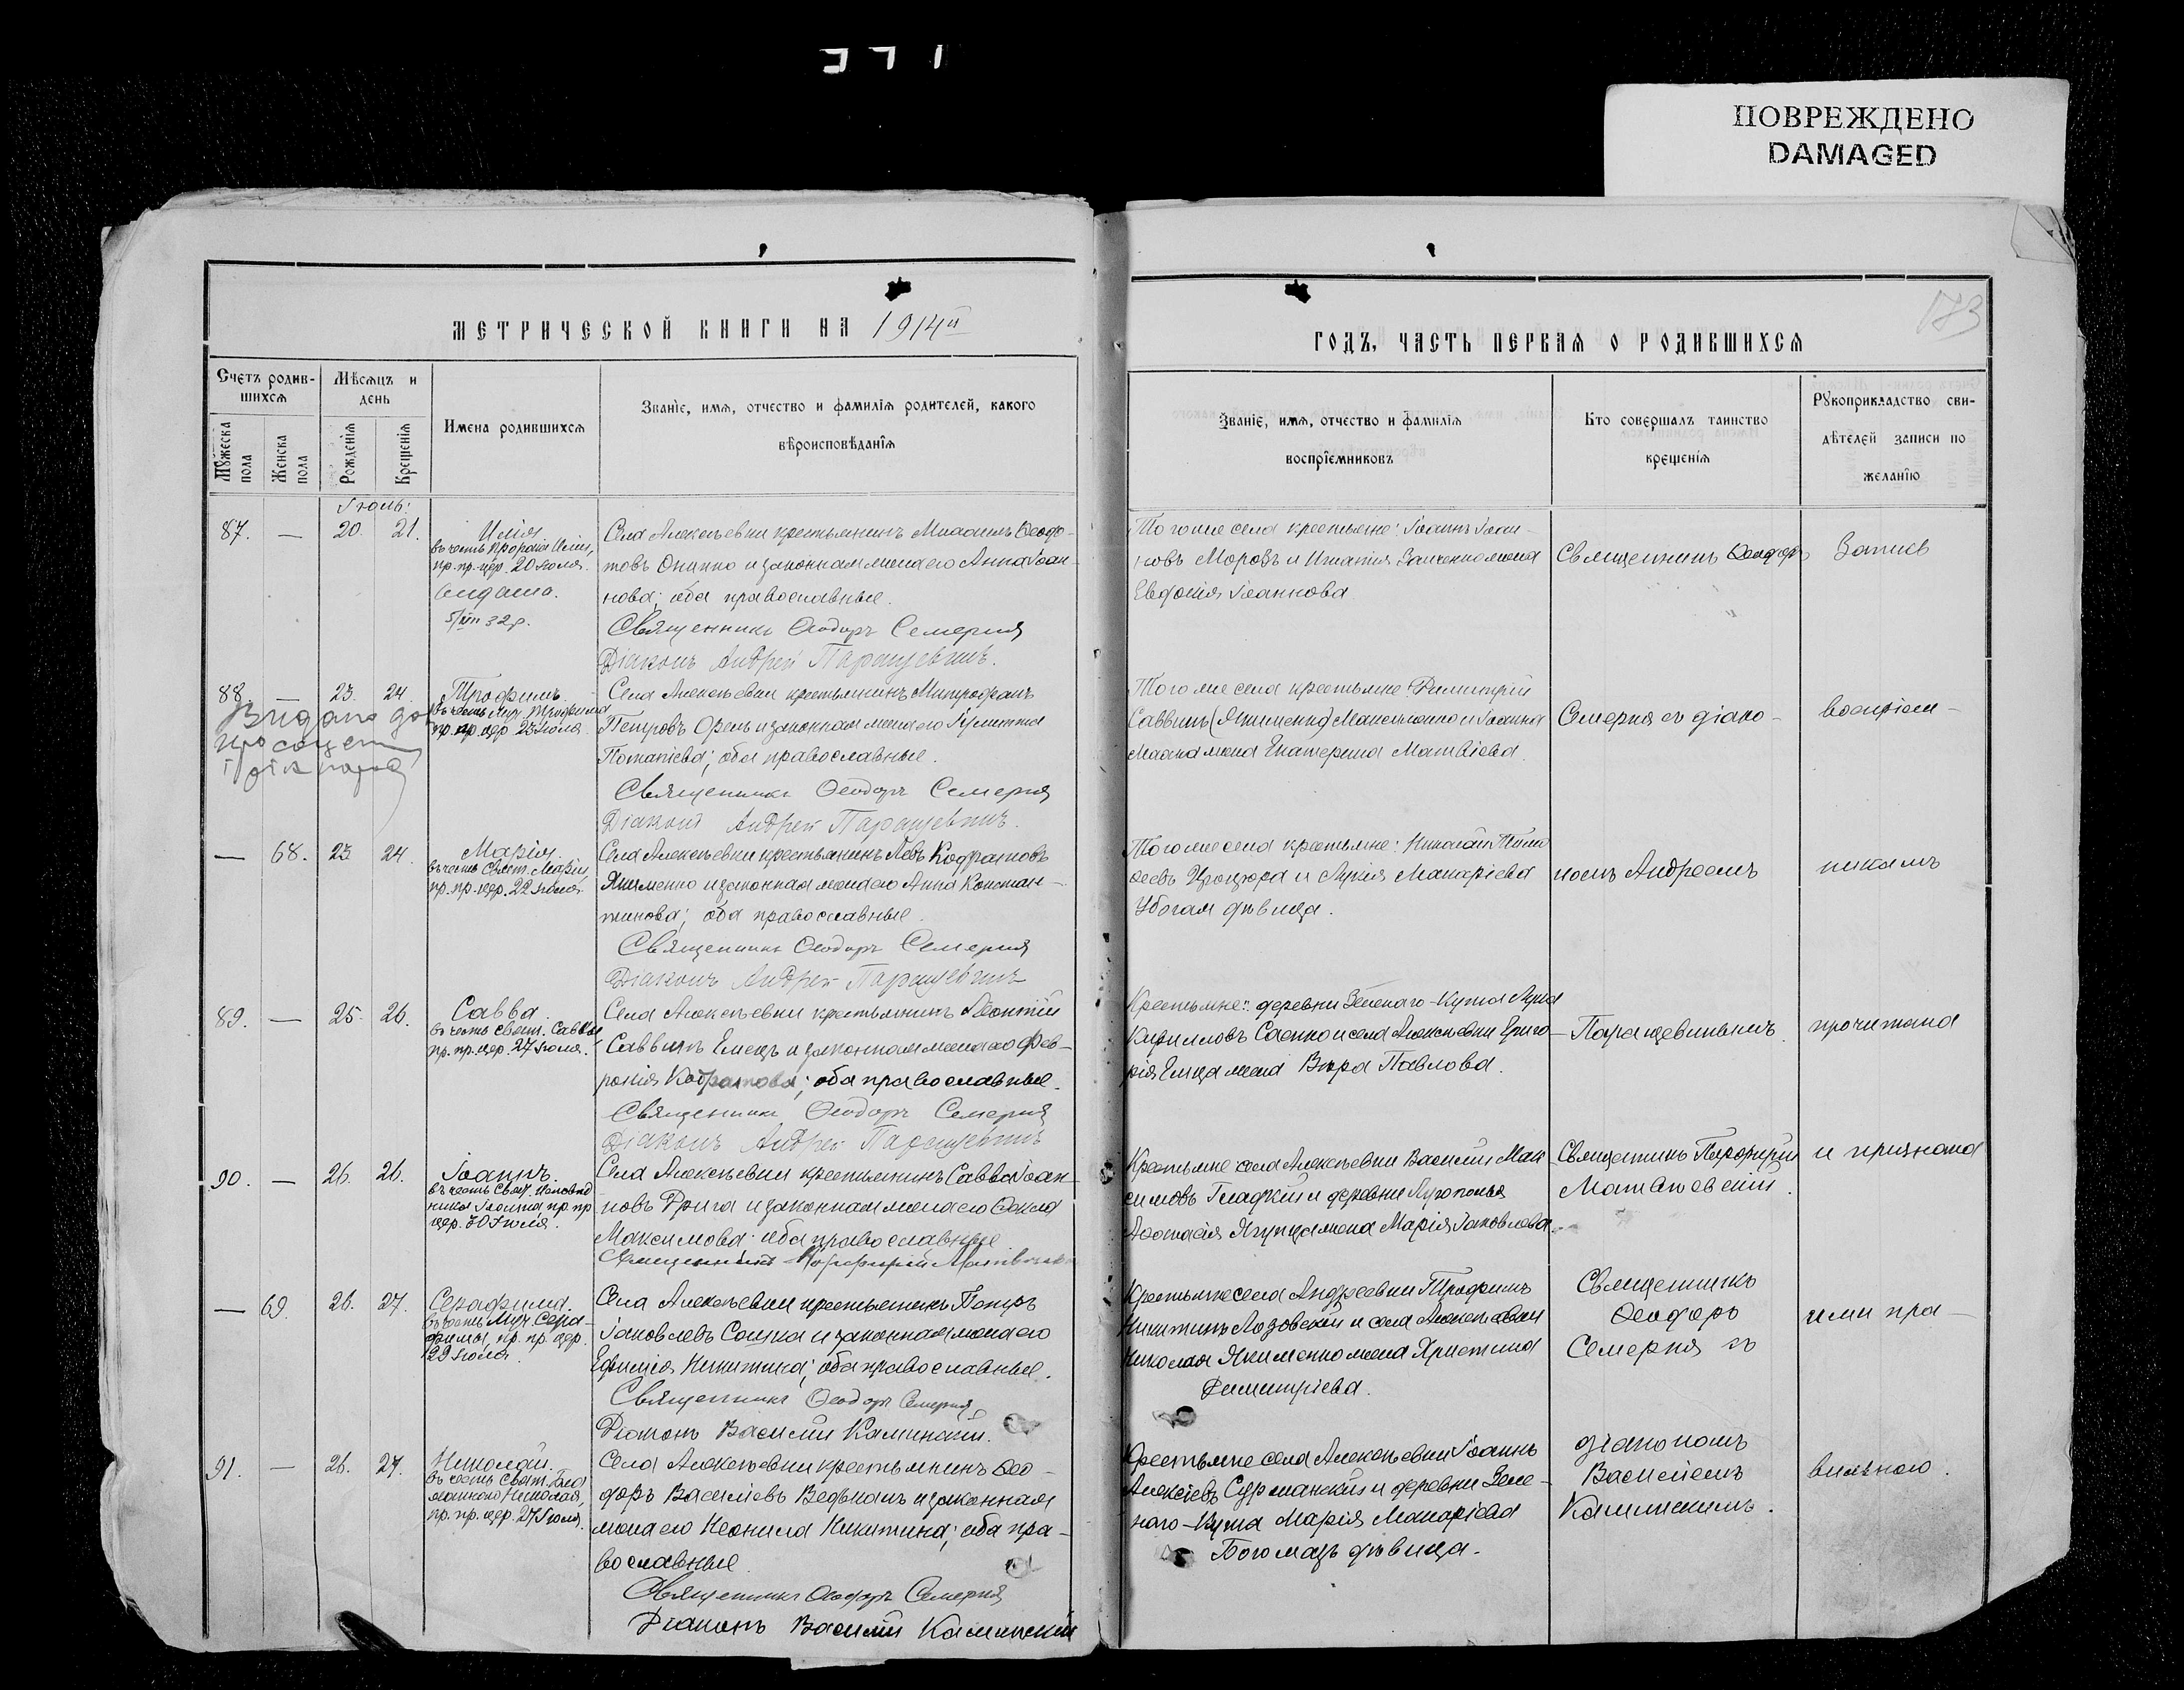 ПОВРЕЖДЕНО
DAMAGED
173
МЕТРИЧЕСКОЙ КНИГИ НА 1914й
ГОДЪ, ЧАСТЬ ПЕРВАЯ О РОДИВШИХСЯ
Счетъ родив-
шихся
Мужеска пола
Женска пола
Мѣсяцъ и
день
Рожденія
Крещенія
Имена родившихся
Званіе, имя, отчество и фамилія родителей, какого
вѣроисповѣданія
Званіе, имя, отчество и фамилія
воспріємниковъ
Кто совершалъ таинство
крещенія
Рукоприкладство сви-
дѣтелей записи по
желанію
Іюль:
87. — 20. 21.
Илія.
въ честь Пророка Иліи,
пр. пр. цер. 20 Іюля.
32р.
Села Алексѣевки крестьянинъ Михаилъ Ѳеодо-
товъ Онипко и законная жена его Анна Іоан-
нова; оба православные.
Священникъ Ѳеодоръ Семерня
Діаконъ Андрей Паращевинъ.
Того же села крестьяне: Іоаннъ Іоан-
новъ Морозъ и Игнатія Заиченко жена
Евдокія Іоаннова
Священникъ Ѳеодоръ
Запись
88. — 23. 24.
Видано до
Трофимъ
въ честь Муч. Трофима
пр. пр. цер. 23 Іюля.
Села Алексѣевки крестьянинъ Митрофанъ
Петровъ Орелъ и законная жена его Іулитта
Потапіева; оба православные.
Священникъ Ѳеодоръ Семерня
Діаконъ Андрей Паращевинъ.
Того же села крестьяне: Димитрій
Саввинъ (Якименко) Максименко и Іоанна
жена Екатерина Матвіева.
Семерня съ діако-
воспріем-
— 68. 23. 24.
Марія.
въ честь Свят. Маріи,
пр. пр. цер. 22 Іюля.
Села Алексѣевки крестьянинъ Левъ Кодратовъ
Якименко и законная жена его Анна Констан-
тинова; оба православные.
Священникъ Ѳеодоръ Семерня
Діаконъ Андрей Паращевинъ
Того же села крестьяне: Николай
и Лукія Макаріева
Убогая дѣвица.
номъ Андреемъ
никамъ
89. — 25. 26.
Савва.
въ честь Свят. Саввы,
пр. пр. цер. 27 Іюля.
Села Алексѣевки крестьянинъ Леонтій
Саввинъ Емецъ и законная жена его Фев-
ронія Кодратова; оба православные.
Священникъ Ѳеодоръ Семерня
Діаконъ Андрей Паращевинъ
Крестьяне: деревни Зеленаго-Кута Лука
Кирилловъ Саенко и села Алексѣевки Григо-
рія Емца жена Вѣра Павлова.
Паращевинымъ.
прочитана
90. — 26. 26.
Іоаннъ.
въ честь Свящ. Исповѣд
ника Іоанна, пр. пр.
цер. 30 Іюля.
Села Алексѣевки крестьянинъ Савва Іоан-
новъ Дрига и законная жена его Ѳекла
Максимова: оба православные
Священникъ Порфирій
Крестьяне села Алексѣевки Василій Мак-
симовъ Гладкій и деревни
жена Марія Іаковлева.
Священникъ Порфирій
и признана
— 69. 26. 27.
Серафима.
въ честь Муч. Сера-
фимы, пр. пр. цер.
29 Іюля.
Села Алексѣевки крестьянинъ Петръ
Іаковлевъ Сошка и законная жена его
Ефимія Никитина; оба православные.
Священникъ Ѳеодоръ Семерня,
Діаконъ Василій Каминскій.
Крестьяне села Андреевки Трофимъ
Никитинъ Лозовскій и села Алексѣевки
Николая Якименко жена Христина
Димитріева.
Священникъ
Ѳеодоръ
Семерня съ
ими пра-
91. — 26. 27.
Николай.
въ честь Свят. Бла
женнаго Николая,
пр. пр. цер. 27 Іюля.
Села Алексѣевки крестьянинъ Ѳео-
доръ Василіевъ Ведькалъ и законная
жена его Неонила Никитина; оба пра-
вославные.
Священникъ Ѳеодоръ Семерня
Діаконъ Василій Каминскій
Крестьяне села Алексѣевки Іоаннъ
Алексіевъ Сурманскій и деревни Зеле-
наго-Кута Марія Макаріева
Богомазъ дѣвица.
діакономъ
Василіемъ
Каминскимъ.
вильною.